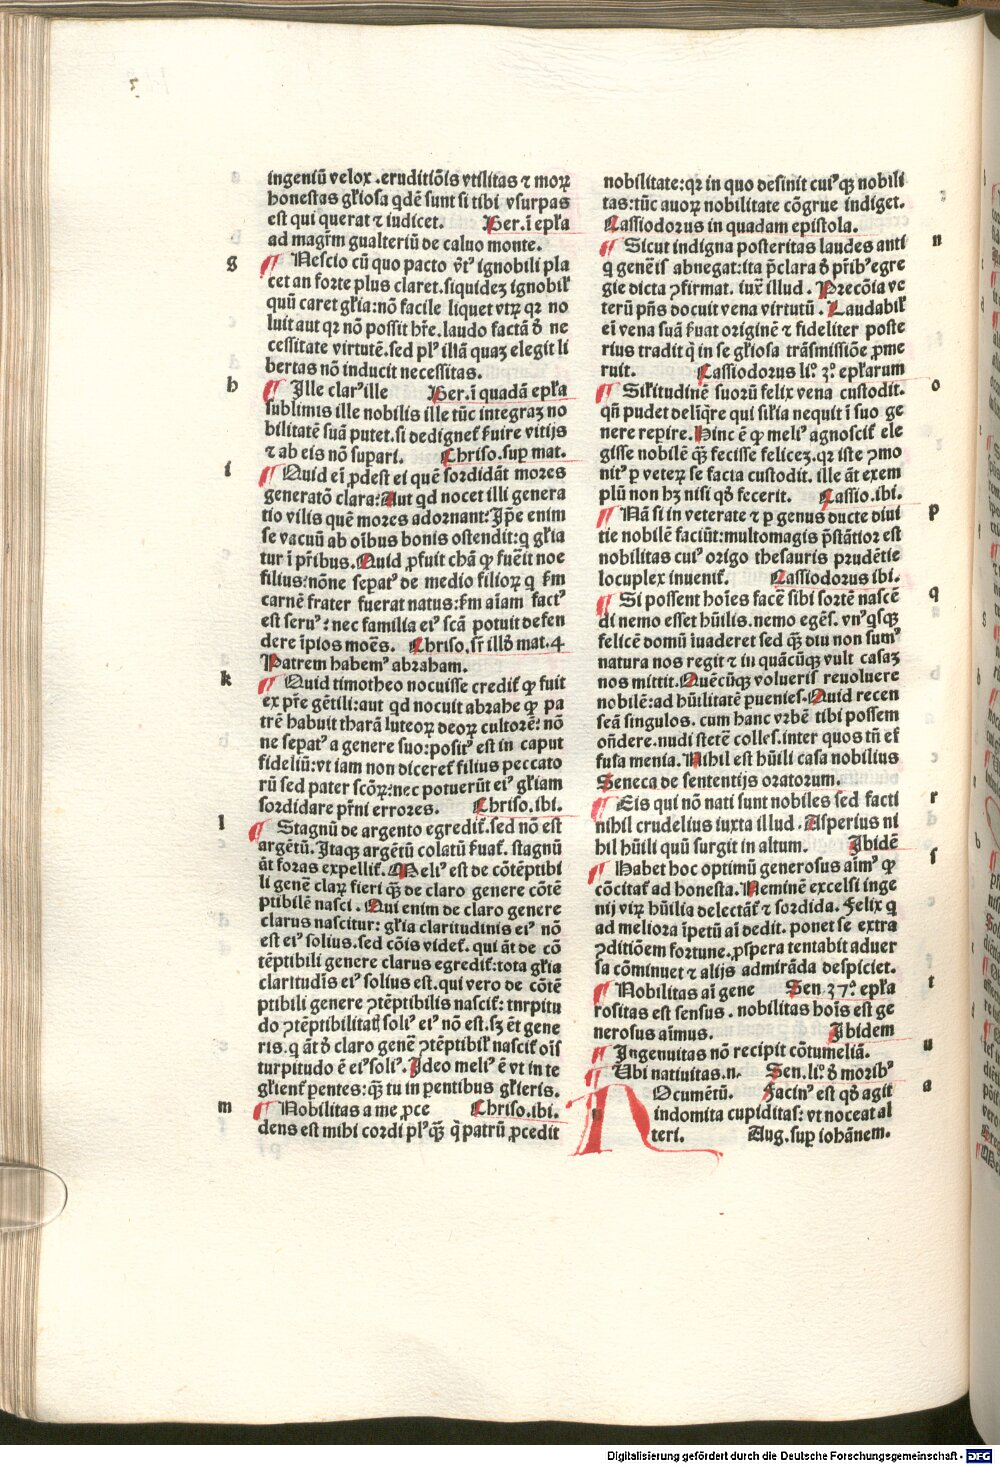 ingeniū velox .eruditiōis vtilitas ⁊ moꝝ
honestas gl̄iosa qdē sunt si tibi vsurpas
est qui querat ⁊ iudicet. Ber.ī epl̄a
ad magr̄m gualteriū de caluo monte.
g
¶ Nescio cū quo pacto v̄tꝰ ignobili pla
cet an forte plus claret.siquidez ignobil̄
quū caret gl̄ia:nō facile liquet vtꝝ qꝛ no
luit aut qꝛ nō possit hr̄e.laudo factā ð ne
cessitate virtutē.sed plꝰ illā quaꝫ elegit li
bertas nō inducit necessitas.
h
¶ Ille clarꝰ ille Ber.ī quadā epl̄a
sublimis ille nobilis ille tūc integraꝫ no
bilitatē suā putet.si dedignet̄ f̄uire vitijs
⁊ ab eis nō supari. Chriso.sup mat.
i
¶ Quid ei ꝓdest ei quē sordidāt mores
generatō clara:Aut qd nocet illi genera
tio vilis quē mores adornant:Ip̄e enim
se vacuū ab oībus bonis ostendit:q gl̄ia
tur ī pr̄ibus.Quid ꝓfuit chā ꝙ fuēit noe
filius:nōne sepatꝰ de medio filioꝝ q f̄m
carnē frater fuerat natus:f̄m aīam factꝰ
est seruꝰ:nec familia eiꝰ scā potuit defen
dere īpios moēs. Chriso.sr̄ illð mat.4
Patrem habemꝰ abraham.
k
¶ Quid timotheo nocuisse credit̄ ꝙ fuit
ex pr̄e gētili:aut qd nocuit abrahe ꝙ pa
trē habuit tharā luteoꝝ deoꝝ cultorē:nō
ne sepatꝰ a genere suo:positꝰ est in caput
fideliū:vt iam non diceret̄ filius peccato
rū sed pater scōꝝ:nec potuerūt eiꝰ gl̄iam
sordidare pr̄ni errores. Chriso.ibi.
l
¶ Stagnū de argento egredit̄.sed nō est
argētū.Itaqꝫ argētū colatū f̄uat̄. stagnū
āt foras expellit̄.Meliꝰ est de cōtēptibi
li genē claꝝ fieri qꝫ̄ de claro genere cōtē
ptibilē nasci . Qui enim de claro genere
clarus nascitur: gl̄ia claritudinis eiꝰ nō
est eiꝰ solius.sed cōis videt̄. qui āt de cō
tēptibili genere clarus egredit̄:tota gl̄ia
claritudīs eiꝰ solius est.qui vero de cōtē
ptibili genere ꝯtēptibilis nascit̄: turpitu
do ꝯtēptibilitatꝭ soliꝰ eiꝰ nō est.sꝫ ēt gene
ris.q āt ð claro genē ꝯtēptibil̄ nascit̄ oīs
turpitudo ē eiꝰsoliꝰ.Ideo meliꝰ ē vt in te
gl̄ient̄ pentes:qꝫ̄ tu in pentibus gl̄ieris.
m
¶ Nobilitas a me ꝓce Chriso.ibi.
dens est mihi cordi plꝰqꝫ̄ q̄ patrū ꝓcedit
nobilitate:qꝛ in quo desinit cuiꝰqꝫ nobili
tas:tūc auoꝝ nobilitate cōgrue indiget.
Cassiodorus in quadam epistola.
n
¶ Sicut indigna posteritas laudes anti
q genēis abnegat:ita p̄clara ð pr̄ibꝰegre
gie dicta ꝯfirmat. iux̄ illud . Precōia ve
terū pn̄s docuit vena virtutū . Laudabil̄
ei vena suā f̄uat originē ⁊ fideliter poste
rius tradit q̄ in se gl̄iosa trāsmissiōe ꝓme
ruit. Cassiodorus liº. 3º. epl̄arum
o
¶ Sil̄itudinē suorū felix vena custodit.
qn̄ pudet delīq̄re qui sil̄ia nequit ī suo ge
nere repire.Hinc ē ꝙ meliꝰ agnoscit̄ ele
gisse nobilē qꝫ̄ fecisse feliceꝫ.qꝛ iste ꝯmo
nitꝰ p veteꝝ se facta custodit. ille āt exem
plū non hꝫ nisi qð fecerit. Cassio.ibi.
p
¶ Nā si in veterate ⁊ p genus ducte diui
tie nobilē faciūt:multomagis p̄stātior est
nobilitas cuiꝰ origo thesauris prudētie
locuplex inuenit̄. Cassiodorus ibi.
q
¶ Si possent hoīes facē sibi sortē nascē
di nemo esset hūilis.nemo egēs. vnꝰqsqꝫ
felicē domū īuaderet sed qꝫ̄ diu non sumꝰ
natura nos regit ⁊ in quācūqꝫ vult casaꝫ
nos mittit.Quēcūqꝫ volueris reuoluere
nobilē:ad hūilitatē puenies.Quid recen
seā singulos. cum hanc vrbē tibi possem
on̄dere.nudi stetē colles.inter quos tn̄ ef
fusa menia. Nihil est hūili casa nobilius
Seneca de sententijs oratorum.
r
¶ Eis qui nō nati sunt nobiles sed facti
nihil crudelius iuxta illud . Asperius ni
hil hūili quū surgit in altum. Ibidē
s
¶ Habet hoc optimū generosus aīmꝰ ꝙ
cōcitat̄ ad honesta. Neminē excelsi inge
nij viꝝ hūilia delectāt̄ ⁊ sordida. Felix q
ad meliora īpetū aī dedit. ponet se extra
ꝯditiōem fortune.ꝓspera tentabit aduer
sa cōminuet ⁊ alijs admirāda despiciet.
t
¶ Nobilitas aī gene Sen.37º.epl̄a
rositas est sensus . nobilitas hoīs est ge
nerosus aīmus. Ibidem
u
¶ Ingenuitas nō recipit cōtumeliā.
¶ Ubi natiuitas.n. Sen.liº.ð moribꝰ
a
NOcumētū. Facinꝰ est qð agit
indomita cupiditas: vt noceat al
teri. Aug.sup iohānem.
Digitalisierung gefördert durch die Deutsche Forschungsgemeinschaft - DFG